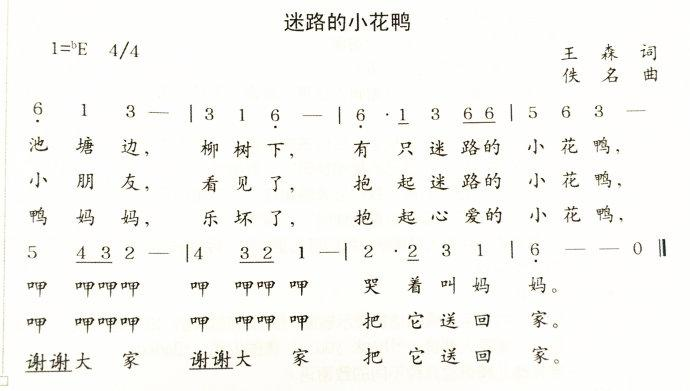 迷路的小花鸭
1=ᵇE 4/4
王 森 词
佚 名 曲
6̣ 1 3 — | 3 1 6̣ — | 6̣ · 1 3 6 6 | 5 6 3 —
池 塘 边， 柳 树 下， 有 只 迷 路 的 小 花 鸭，
小 朋 友， 看 见 了， 抱 起 迷 路 的 小 花 鸭，
鸭 妈 妈， 乐 坏 了， 抱 起 心 爱 的 小 花 鸭，
5 4 3 2 — | 4 3 2 1 — | 2 · 2 3 1 | 6̣ — — 0 ‖
呷 呷呷呷 呷 呷呷 呷 哭 着 叫 妈 妈。
呷 呷呷呷 呷 呷呷 呷 把 它 送 回 家。
谢谢大 家 谢谢大 家 把 它 送 回 家。